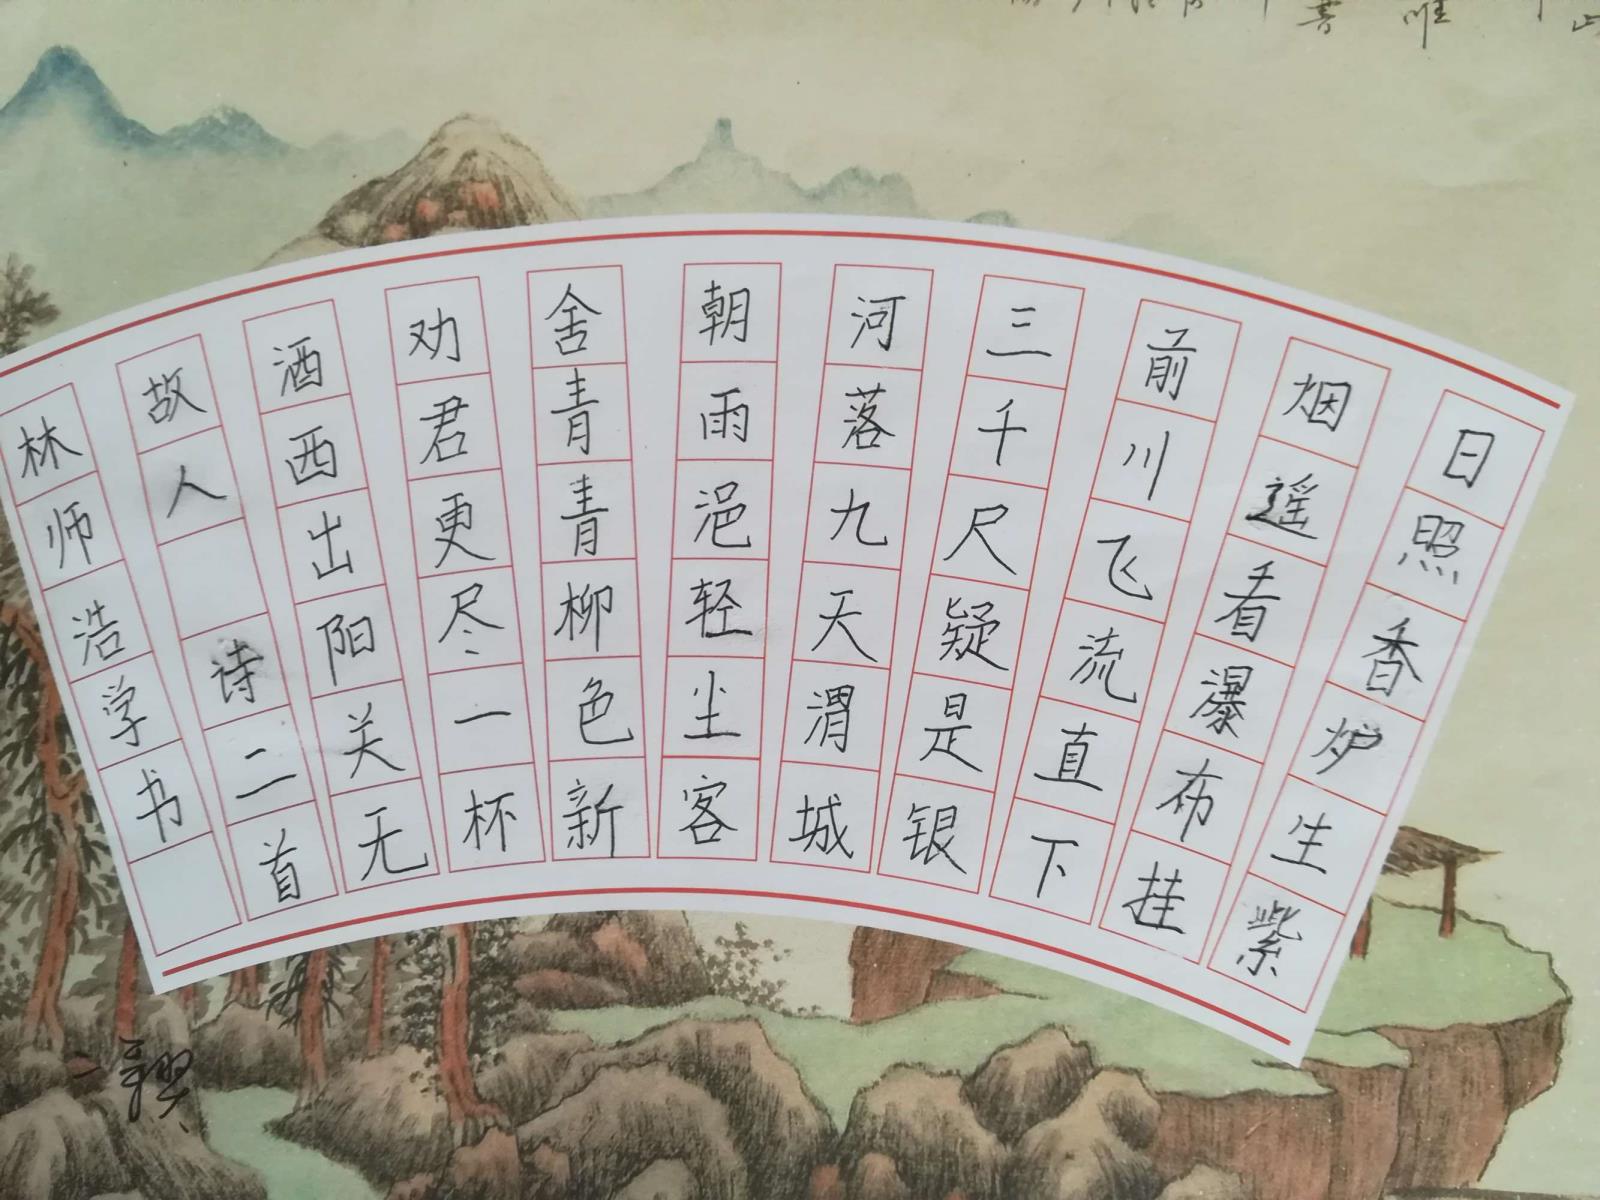 日照香炉生紫
烟遥看瀑布挂
前川飞流直下
三千尺疑是银
河落九天渭城
朝雨浥轻尘客
舍青青柳色新
劝君更尽一杯
酒西出阳关无
故人 诗二首
林师浩学书